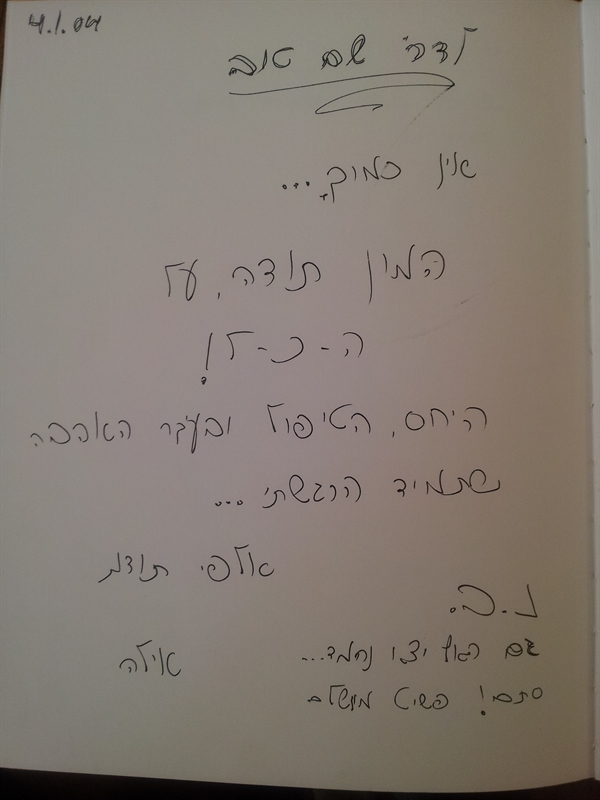 4.1.04
לדר' שם טוב
אין כמוך...
המון תודה, על
ה-כ-ל!
היחס, הטיפול ובעיקר האהבה
שתמיד הרגשתי...
אלפי תודות
נ.ב.
גם הגוף יצא נחמד...
סתם! פשוט מושלם
אילה